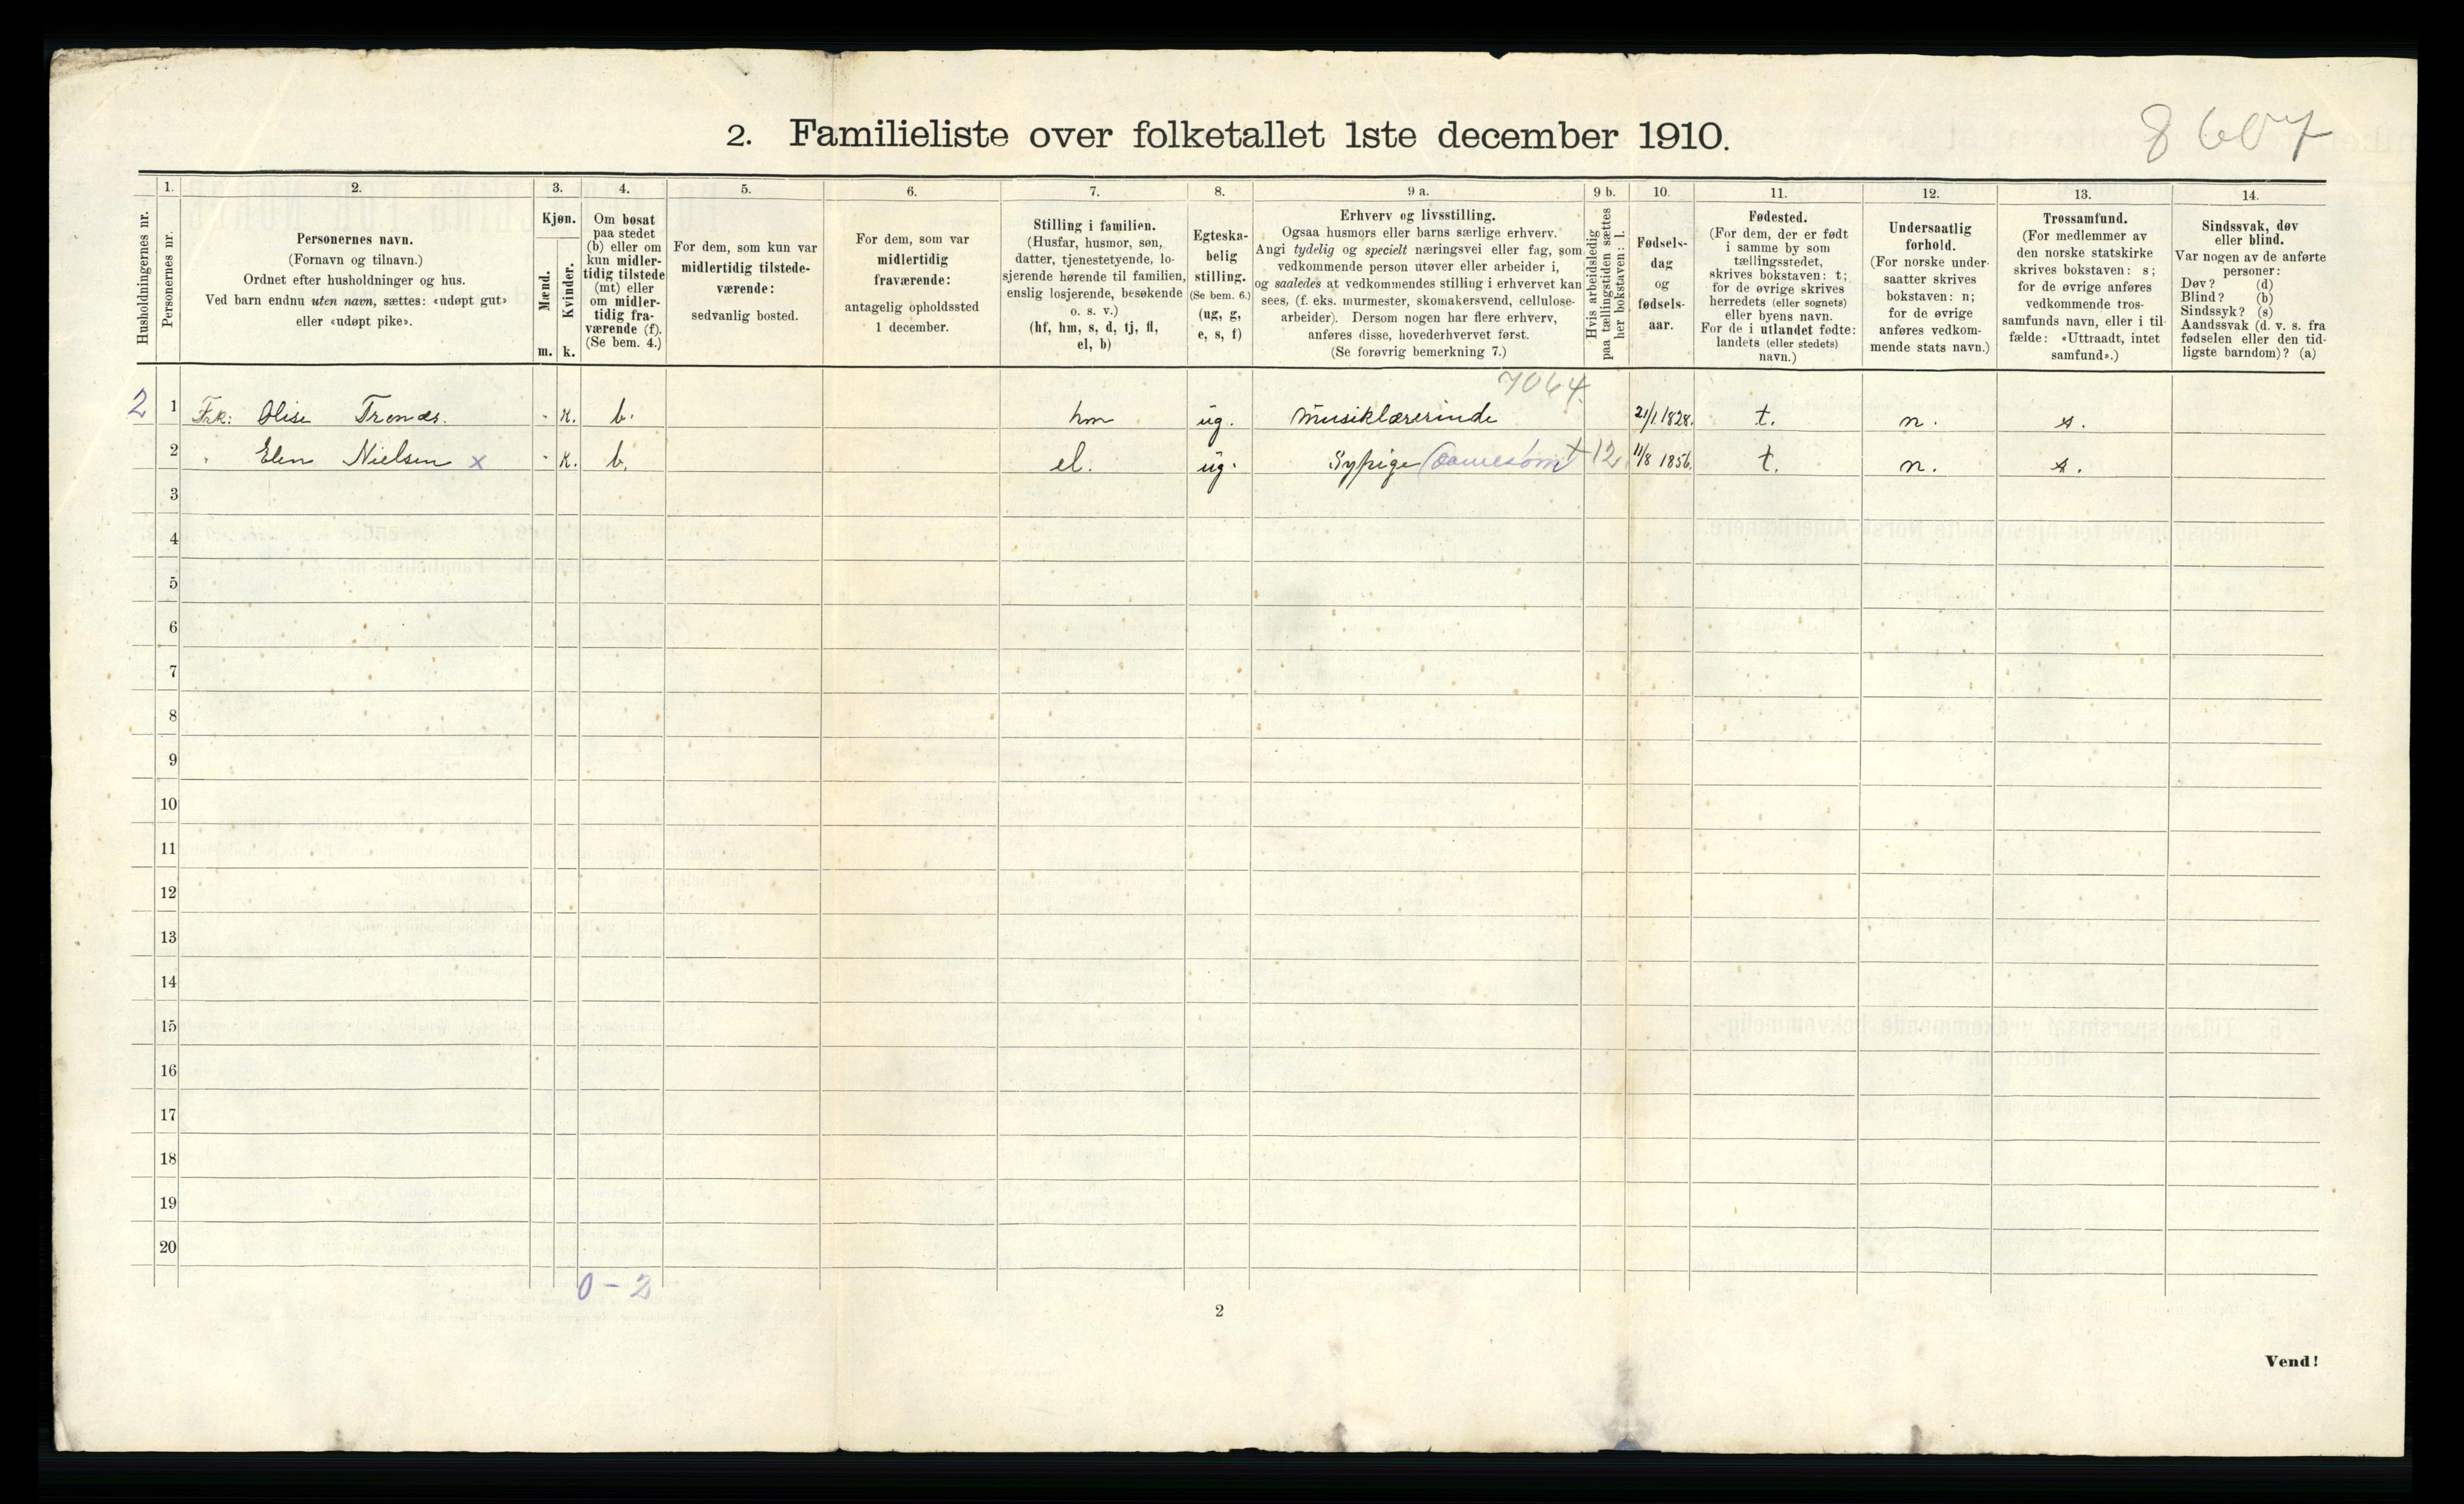 8 607
2. Familieliste over folketallet 1ste december 1910.
Husholdningernes nr.
1.
Personernes nr.
2.
Personernes navn.
(Fornavn og tilnavn.)
Ordnet efter husholdninger og hus.
Ved barn endnu uten navn, sættes: «udøpt gut»
eller «udøpt pike».
3.
Kjøn.
Mænd.
Kvinder.
m. k.
4.
Om bosat
paa stedet
(b) eller om
kun midler-
tidig tilstede
(mt) eller
om midler-
tidig fra-
værende (f).
(Se bem. 4.)
5.
For dem, som kun var
midlertidig tilstede-
værende:
sedvanlig bosted.
6.
For dem, som var
midlertidig
fraværende:
antagelig opholdssted
1 december.
7.
Stilling i familien.
(Husfar, husmor, søn,
datter, tjenestetyende, lo-
sjerende hørende til familien,
enslig losjerende, besøkende
o. s. v.)
(hf, hm, s, d, tj, fl,
el, b)
8.
Egteska-
belig
stilling.
(Se bem. 6.)
(ug, g,
e, s, f)
9 a.
Erhverv og livsstilling.
Ogsaa husmors eller barns særlige erhverv.
Angi tydelig og specielt næringsvei eller fag, som
vedkommende person utøver eller arbeider i,
og saaledes at vedkommendes stilling i erhvervet kan
sees, (f. eks. murmester, skomakersvend, cellulose-
arbeider). Dersom nogen har flere erhverv,
anføres disse, hovederhvervet først.
(Se forøvrig bemerkning 7.)
9 b.
Hvis arbeidsledig
paa tællingstiden sættes
her bokstaven: l.
10.
Fødsels-
dag
og
fødsels-
aar.
11.
Fødested.
(For dem, der er født
i samme by som
tællingsstedet,
skrives bokstaven: t;
for de øvrige skrives
herredets (eller sognets)
eller byens navn.
For de i utlandet fødte:
landets (eller stedets)
navn.)
12.
Undersaatlig
forhold.
(For norske under-
saatter skrives
bokstaven: n;
for de øvrige
anføres vedkom-
mende stats navn.)
13.
Trossamfund.
(For medlemmer av
den norske statskirke
skrives bokstaven: s;
for de øvrige anføres
vedkommende tros-
samfunds navn, eller i til-
fælde: «Uttraadt, intet
samfund».)
14.
Sindssvak, døv
eller blind.
Var nogen av de anførte
personer:
Døv? (d)
Blind? (b)
Sindssyk? (s)
Aandssvak (d. v. s. fra
fødselen eller den tid-
ligste barndom)? (a)
7064.
2 1 Frk: Olise - K. b. hm ug. Musiklærerinde 21/1 1828. t. n. s.
2 " Elen Nielsen x - K. b. el. ug. Sypige (Damesøm + 12 11/8 1856. t. n. s.
3
4
5
6
7
8
9
10
11
12
13
14
15
16
17
18
19
20
0 - 2
2
Vend!